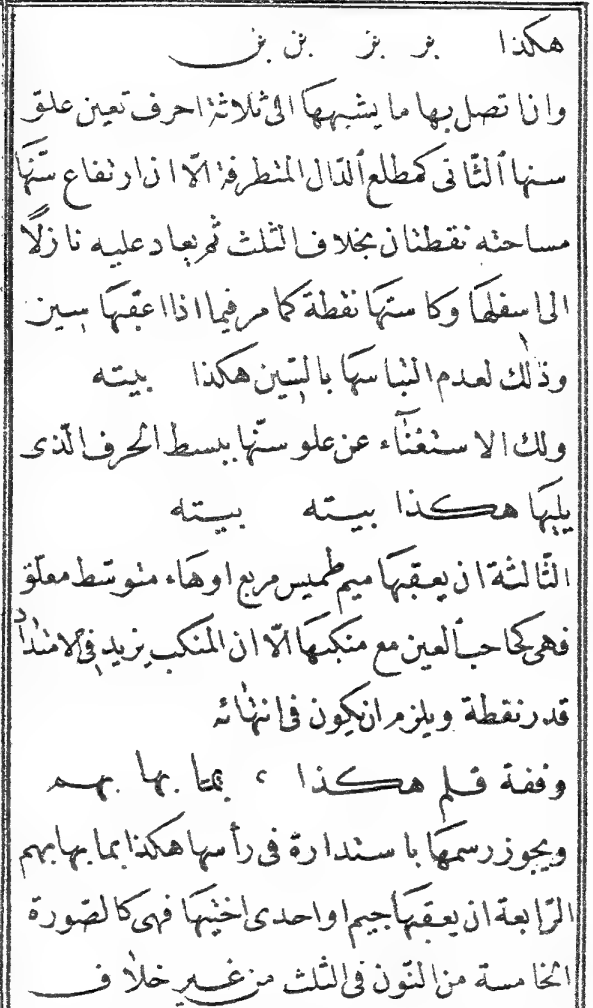 هكذا بر بز بن بى
وان اتصل بها ما يشبهها الى ثلاثة احرف تعين علو
سنها الثانى كمطلع الدال المتطرفة الا ان ارتفاع سنها
مساحته نقطتان بخلاف الثلث ثم يعاد عليه نازلا
الى اسفلها وكا ستها نقطة كما مر فيما اذا اعقبها سين
وذلك لعدم التباسها بالسين هكذا بيته
ولك الاستغناء عن علو سنها ببسط الحرف الذى
يليها هكذا بيته بيته
الثالثة ان يعقبها ميم طميس مربع او هاء متوسط معلق
فهى كحاجب العين مع منكبها الا ان المنكب يزيد فى الامتداد
قدر نقطة ويلزم ان يكون فى انتهائه
وقفة قلم هكذا ، بما بها بهم
ويجوز رسمها باستدارة فى رأسها هكذا بما بها بهم
الرابعة ان يعقبها جيم او احدى اختيها فهى كالصورة
الخامسة من النون فى الثلث من غير خلاف